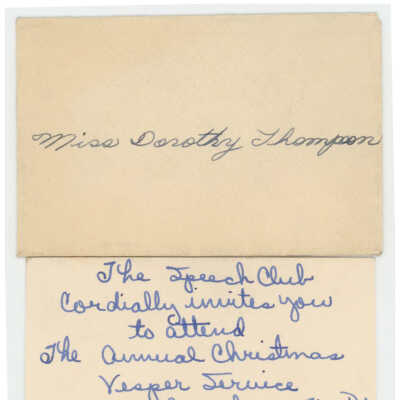 Miss Dorothy Thompson
The Speech Club
Cordially invites you
to attend
The Annual Christmas
Vesper Service